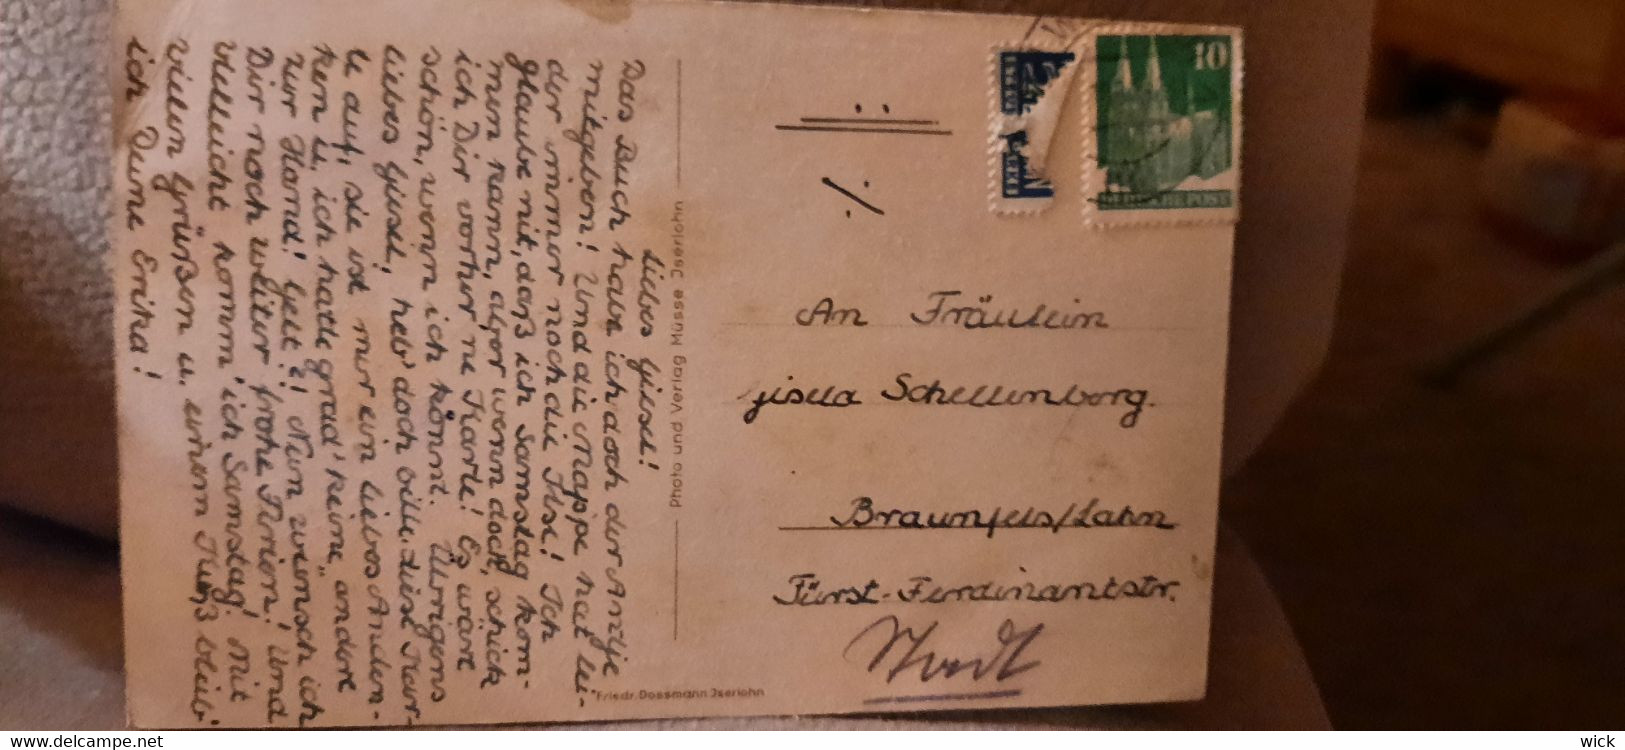 Liebes Gisel!
Das Buch habe ich doch der Antje
mitgeben! Und die Mappe hat lei-
der immer noch die Ilse! Ich
glaube nit, daß ich Samstag kom-
men kann, aber wenn doch, schick
ich Dir vorher ne Karte! Es wäre
schön, wenn ich könnt. Übrigens
liebes Gisel, heb' doch bitte diese Kar-
te auf, sie ist mir ein liebes Anden-
ken u. ich hatte grad' keine andere
zur Hand! Gell!! Nun wünsch ich
Dir noch weiter frohe Ferien! Und
vielleicht komm' ich Samstag! Mit
vielen Grüßen u. einem Kuß bleib'
ich Deine Erika!
Photo und Verlag Müsse Iserlohn
Friedr. Dossmann Iserlohn
10
DEUTSCHE POST
An Fräulein
Gisela Schellenberg.
Braunfels/Lahn
Fürst-Ferdinandstr.
wick
delcampe.net